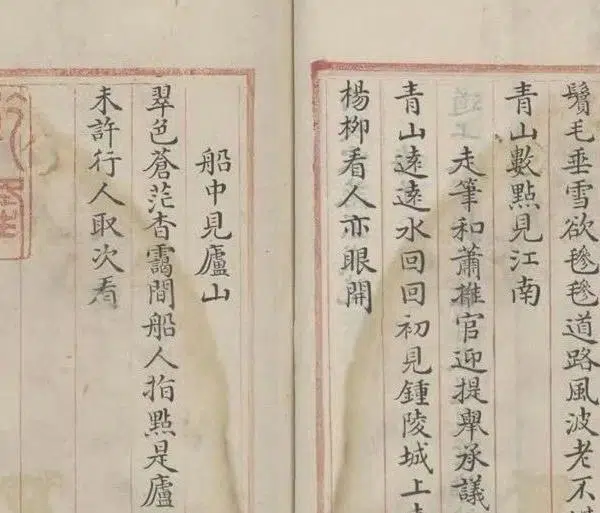 鬢毛垂雪欲毵毵道路風波老不
青山數點見江南
道上走筆和蕭推官迎提舉承議
青山遠遠水回回初見鍾陵城上
楊栁看人亦眼開
船中見廬山
翠色蒼茫杳靄間船人指點是廬
未許行人取次看